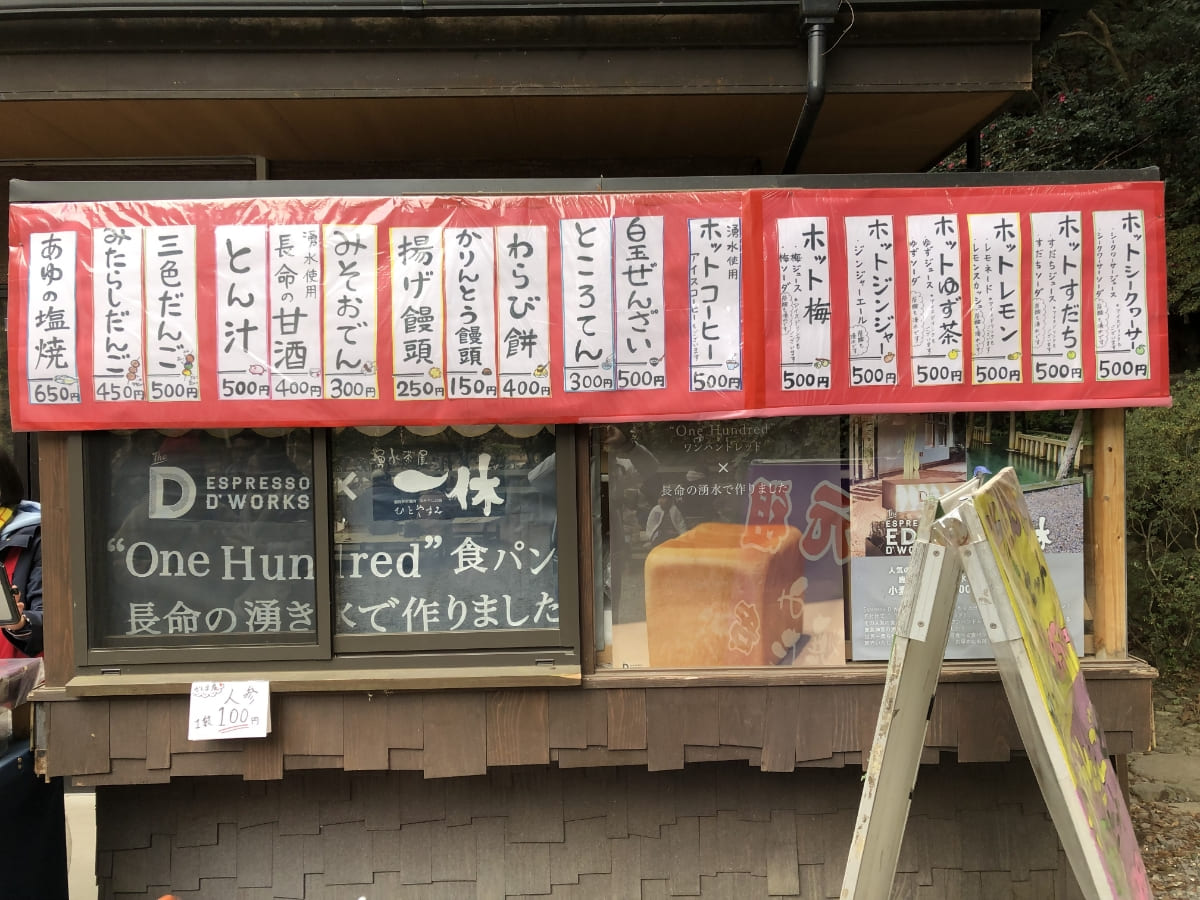 あゆの塩焼
650円
みたらしだんご
450円
三色だんご
500円
とん汁
500円
湧水使用
長命の甘酒
400円
みそおでん
300円
揚げ饅頭
250円
かりんとう饅頭
150円
わらび餅
400円
ところてん
300円
白玉ぜんざい
500円
湧水使用
ホットコーヒー
アイスコーヒーもございます
500円
ホット梅
梅ジュース
梅ソーダ
500円
ホットジンジャー
ジンジャーエール
500円
ホットゆず茶
ゆずジュース
ゆずソーダ
500円
ホットレモン
レモネード
レモンスカッシュ
500円
ホットすだち
すだちジュース
すだちソーダ
500円
ホットシークワーサー
シークワーサージュース
シークワーサーソーダ
500円
The
D
ESPRESSO
D'WORKS
×
湧水茶屋
一休
ひとやすみ
"One Hundred" 食パン
長命の湧き水で作りました
"One Hundred"
ワンハンドレッド
×
長命の湧水で作りました
人参
1袋 100円